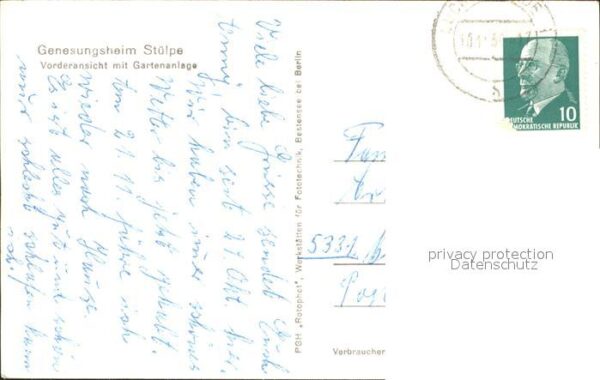 Genesungsheim Stülpe
Vorderansicht mit Gartenanlage
Viele liebe Grüsse sendet Euch
bin seit 27. Okt. hier.
Wir haben immer schönes
Wetter bis jetzt gehabt.
21.11. fahre ich
wieder nach Hause.
Es ist alles gut und schön
nur schlecht schlafen kann
ich.
PGH „Rotophot", Werkstätten für Fototechnik, Bestensee bei Berlin
10
DEUTSCHE
DEMOKRATISCHE REPUBLIK
Fam
5331
privacy protection
Datenschutz
Verbraucher